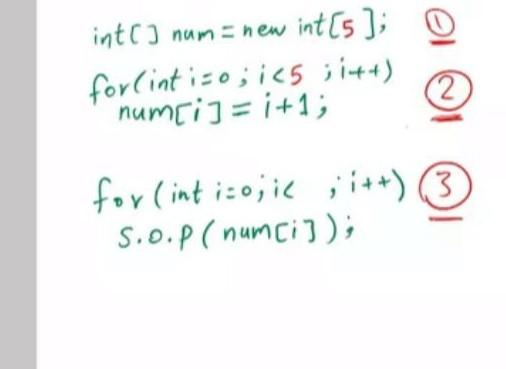 int[] num = new int[5]; 1
for(int i=0; i<5 ; i++) 2
num[i] = i+1;
for(int i=0; i< ; i++) 3
S.O.P(num[i]);